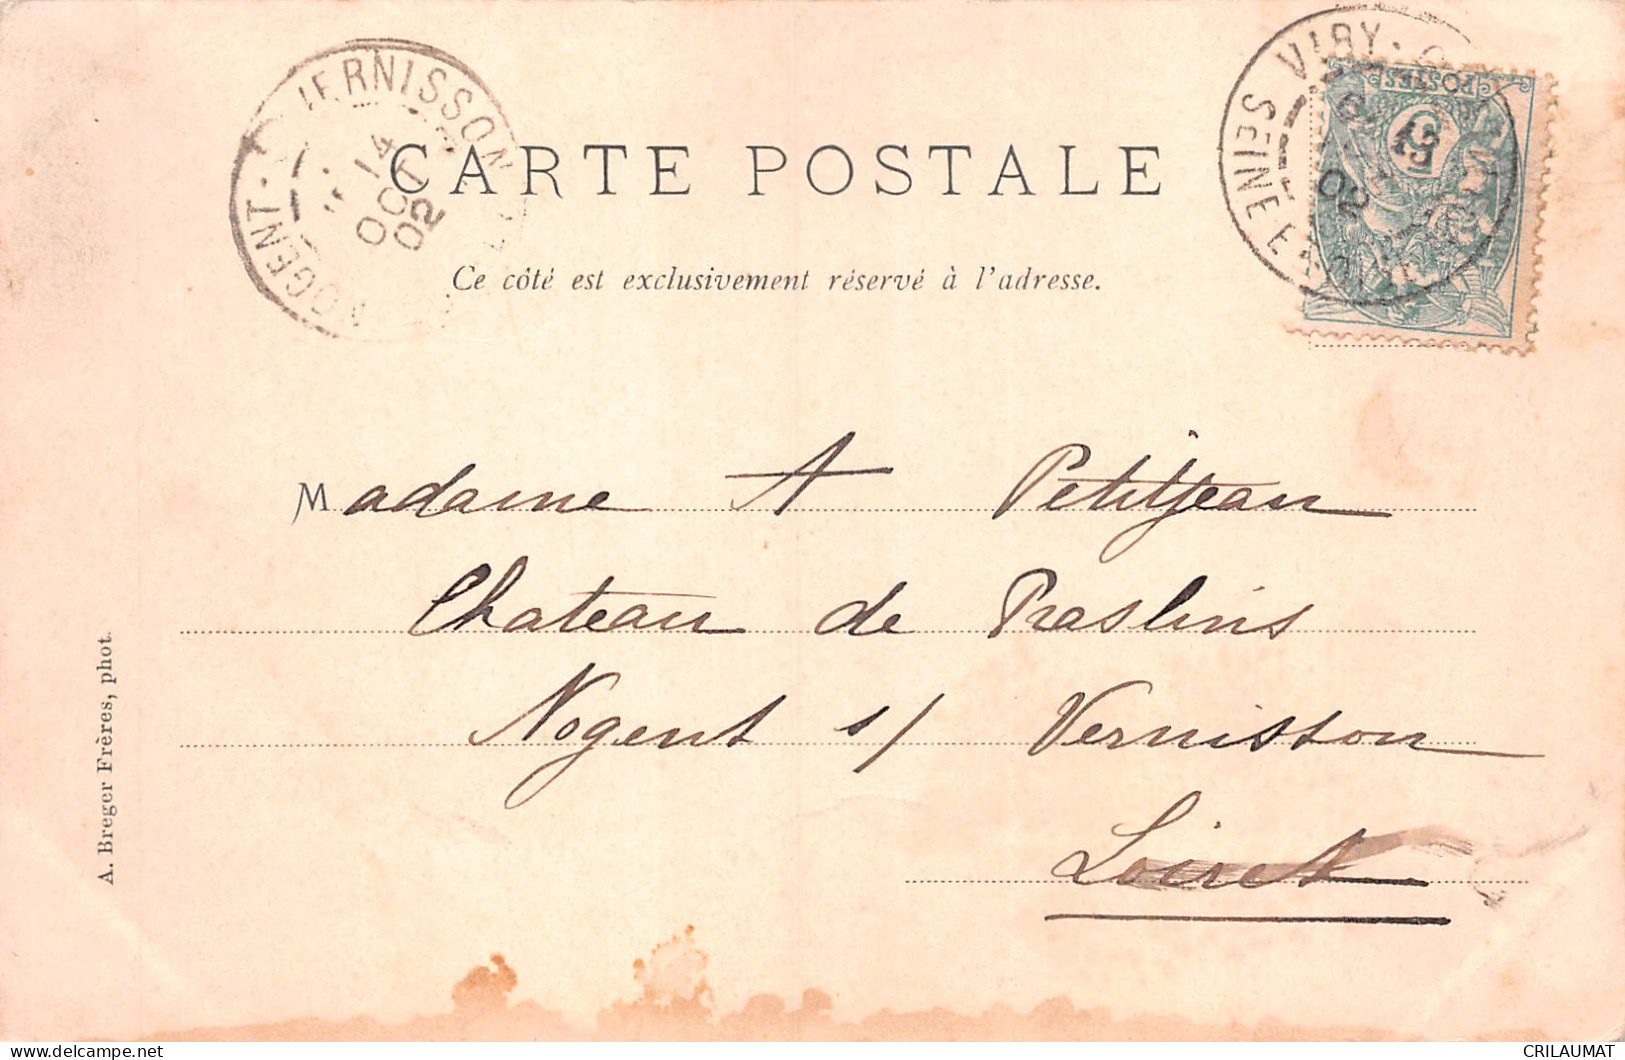 CARTE POSTALE
Ce côté est exclusivement réservé à l'adresse.
NOGENT-S-VERNISSON
14
OCT
02
VIRY-
SEINE ET OISE
02
POSTES
5
Madame A Petitjean
Chateau de Praslins
Nogent s/ Vernisson
Loiret
A. Breger Frères, phot.
CRILAUMAT